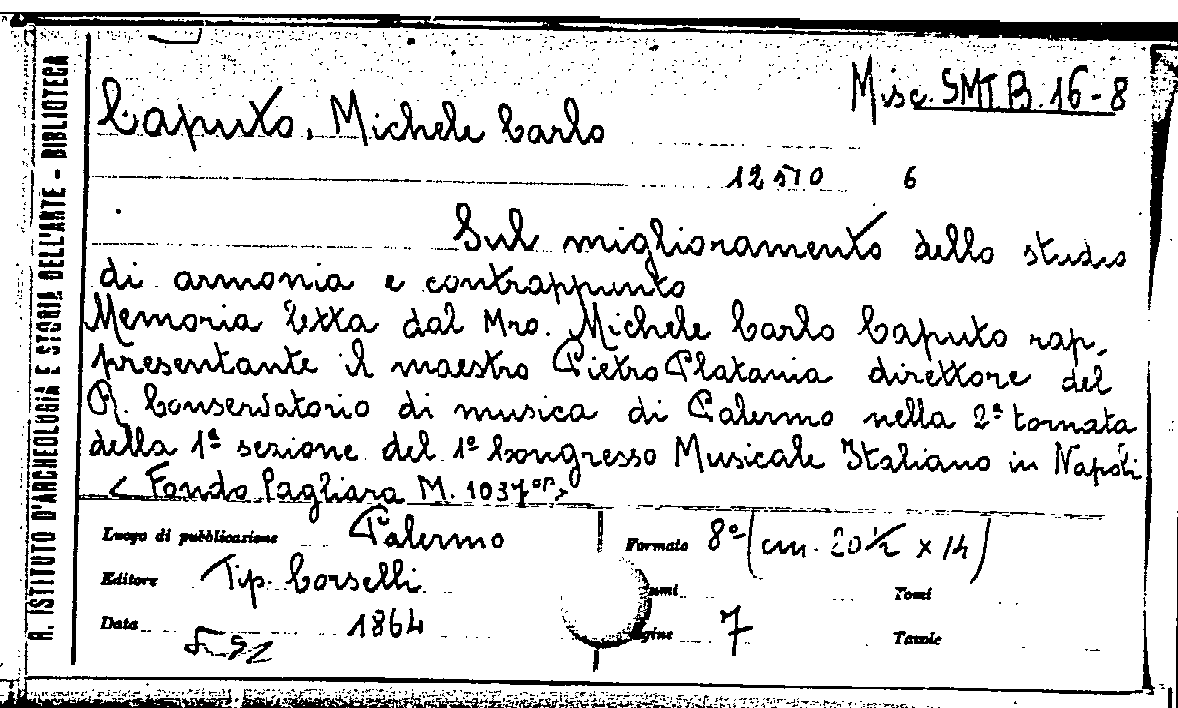 R. ISTITUTO D'ARCHEOLOGIA E STORIA DELL'ARTE - BIBLIOTECA
Misc. SMT B. 16-8
Caputo, Michele Carlo
12510 6
Sul miglioramento dello studio
di armonia e contrappunto
Memoria letta dal Mro. Michele Carlo Caputo rap-
presentante il maestro Pietro Platania direttore del
R. Conservatorio di musica di Palermo nella 2ª tornata
della 1ª sezione del 1º Congresso Musicale Italiano in Napoli
< Fondo Pagliara M. 1037 >
Luogo di pubblicazione Palermo Formato 8º (cm. 20 1/2 x 14)
Editore Tip. Corselli Tomi
Data 1864 7 Tavole